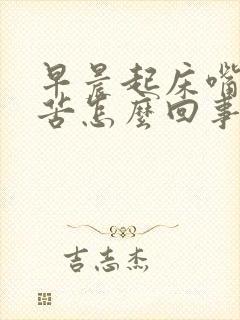 早晨起床嘴
苦怎麼回事
吉志杰